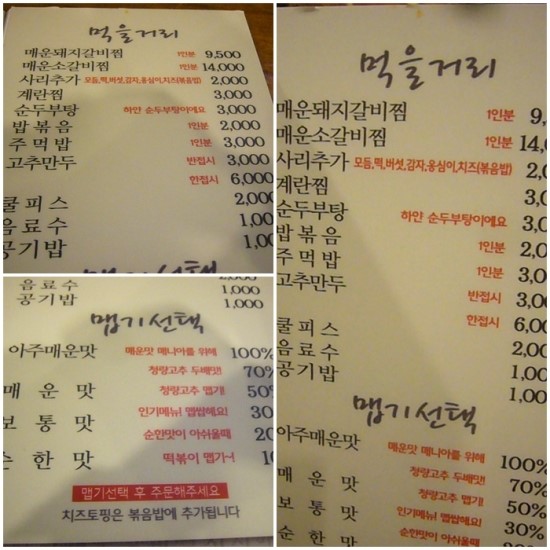 먹을거리
매운돼지갈비찜 1인분 9,500
매운소갈비찜 1인분 14,000
사리추가 모듬,떡,버섯,감자,옹심이,치즈(볶음밥) 2,000
계란찜 3,000
순두부탕 하얀 순두부탕이에요 3,000
밥볶음 1인분 2,000
주먹밥 1인분 3,000
고추만두 반접시 3,000
한접시 6,000
쿨피스 2,00
음료수 1,00
공기밥 1,00
음료수 1,000
공기밥 1,000
맵기선택
아주매운맛 매운맛 매니아를 위해 100%
청량고추 두배맛! 70%
매운맛 청량고추 맵기! 50%
인기메뉴! 맵쌉해요! 30
보통맛 순한맛이 아쉬울때 20
순한맛 떡볶이 맵기~! 10
맵기선택 후 주문해주세요
치즈토핑은 볶음밥에 추가됩니다
먹을거리
매운돼지갈비찜 1인분 9,
매운소갈비찜 1인분 14,
사리추가 모듬,떡,버섯,감자,옹심이,치즈(볶음밥) 2,0
계란찜 3,0
순두부탕 하얀 순두부탕이에요 3,0
밥볶음 1인분 2,0
주먹밥 1인분 3,0
고추만두 반접시 3,00
한접시 6,00
쿨피스 2,00
음료수 1,00
공기밥 1,00
맵기선택
아주매운맛 매운맛 매니아를 위해 100%
청량고추 두배맛! 70%
매운맛 청량고추 맵기! 50%
보통맛 인기메뉴! 맵쌉해요! 30%
순한맛 순한맛이 아쉬울때